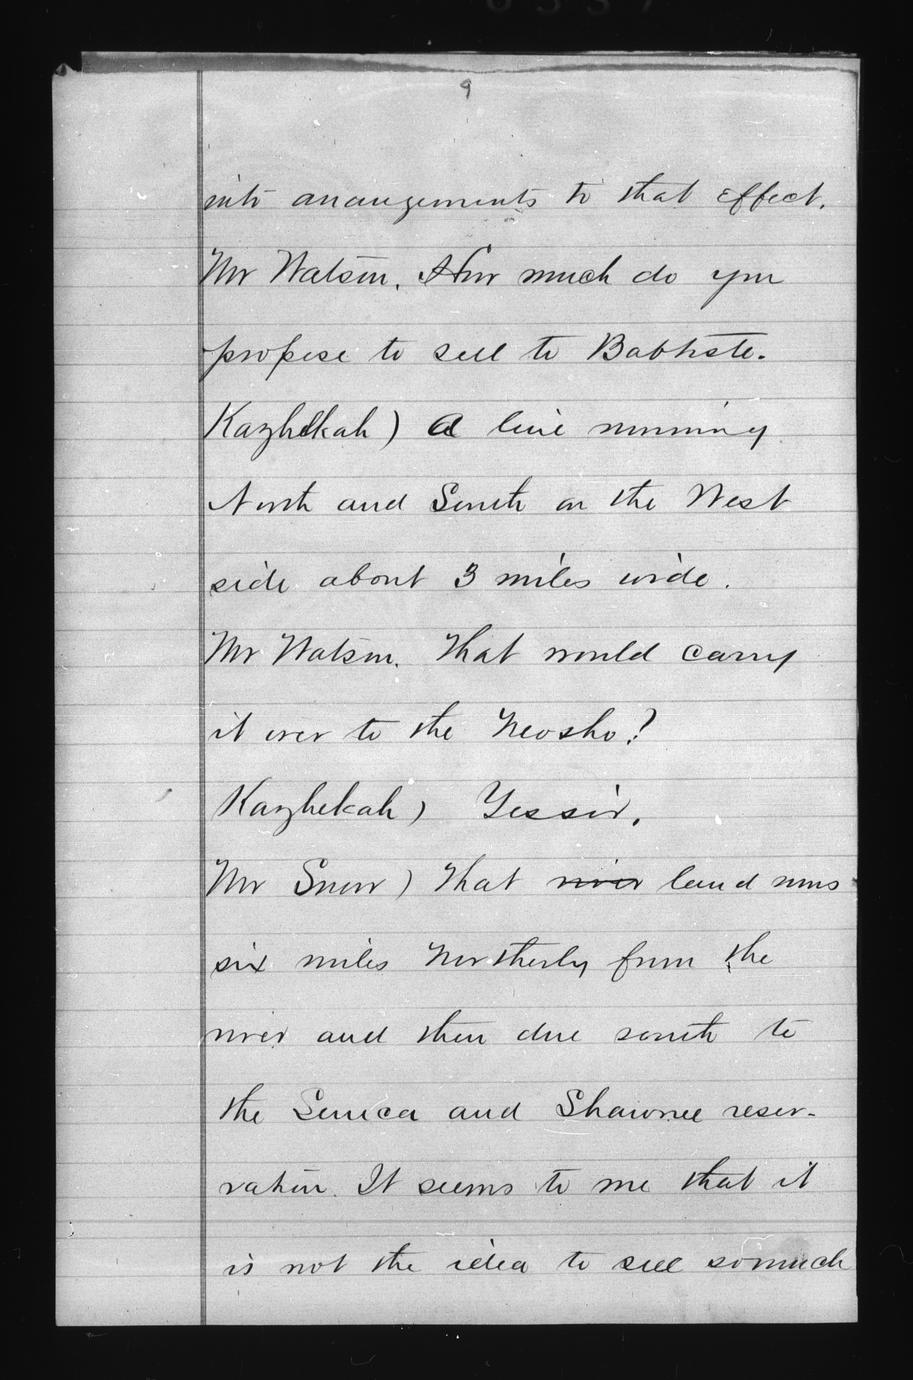 9
into arrangements to that effect.
Mr Watson. How much do you
propose to sell to Babtiste.
Kazhekah) a line running
North and South on the West
side about 3 miles wide.
Mr Watson. That would carry
it over to the Neosho?
Kazhekah) Yessir.
Mr Snow) That river land runs
six miles Northerly from the
river and then due south to
the Seneca and Shawnee reser-
vation. It seems to me that it
is not the idea to sell so much